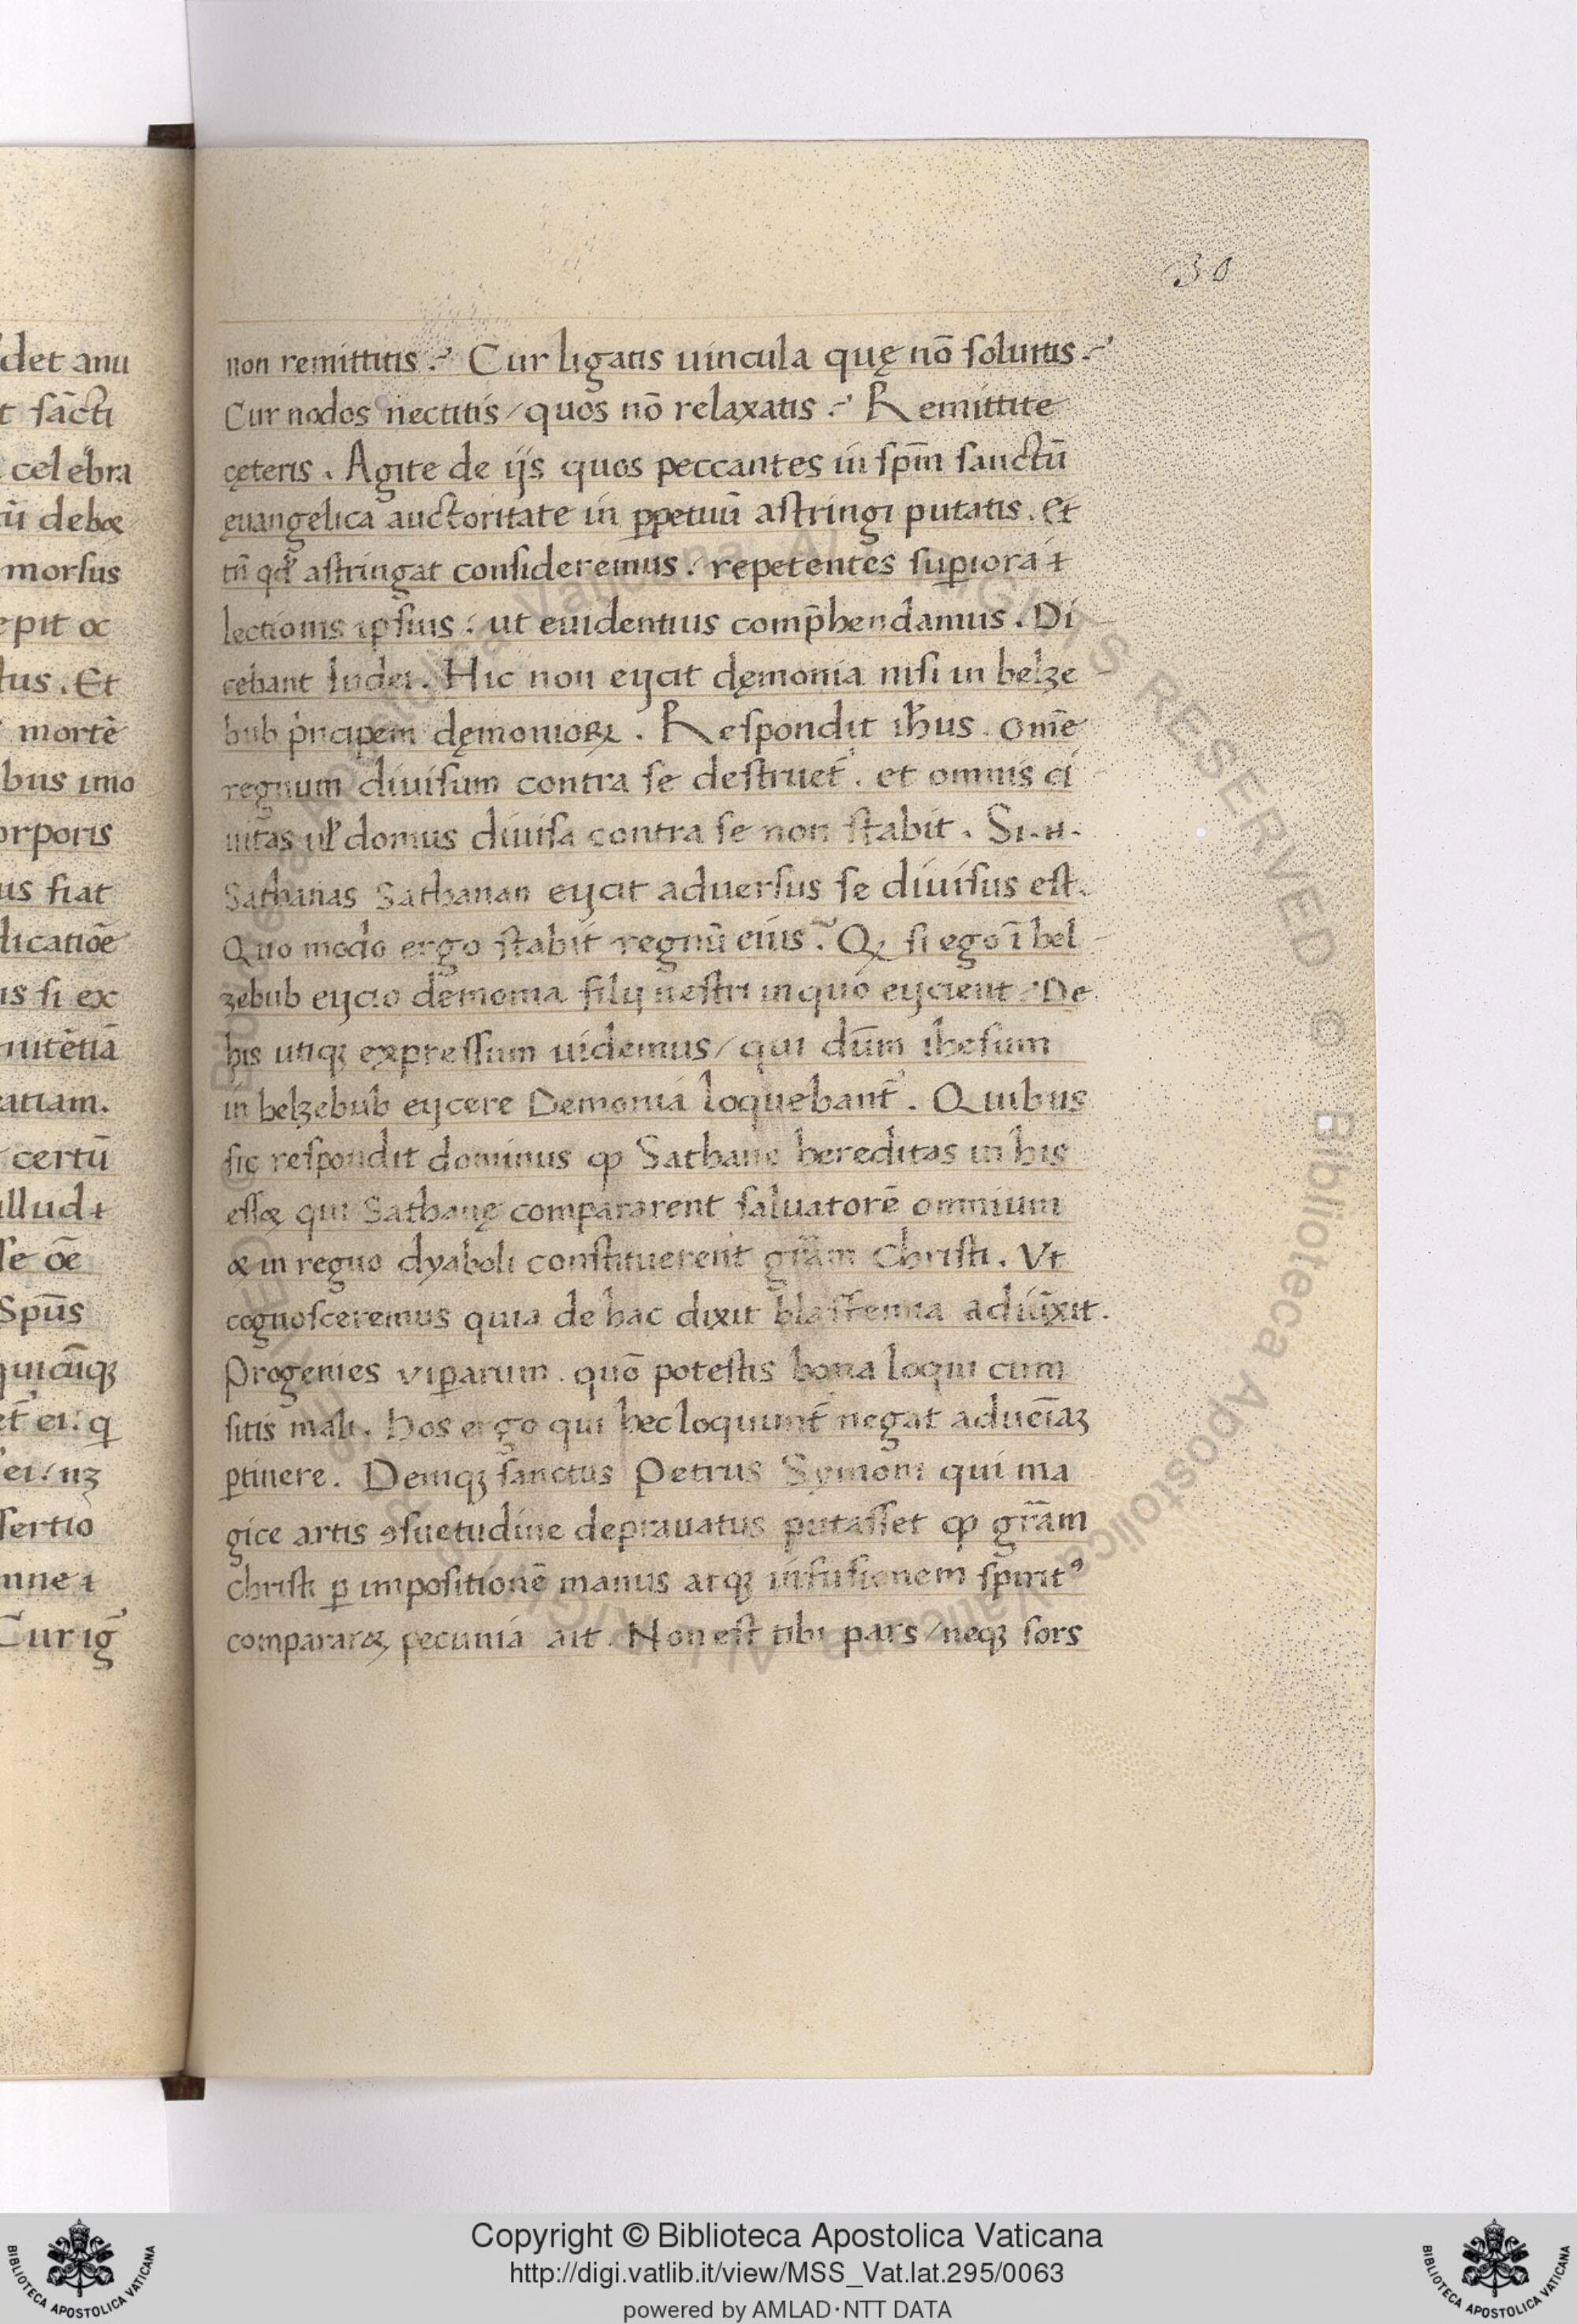 det anu
t sāct̄i
celebra
ū debæ
morsus
epit oc
tus. Et
mortē
bus imo
orporis
us fiat
dicatiōe
is si ex
nitētiā
atiam.
certū
illud ⁊
se ōe
Spūs
quicūqꝫ
et̄ ei: ꝗ
ei/ nꝫ
sertio
mne ⁊
Cur iḡ
30
non remittitis? Cur ligatis uincula quę nō soluitis?
Cur nodos nectitis/ quos nō relaxatis? Remittite
cęteris. Agite de ijs quos peccantes in spm̄ sanctū
euangelica auctoritate in ꝑpetuū astringi putatis. Et
tn̄ qd̄ astringat consideremus: repetentes suꝑiora ⁊
lectionis ipsius: ut euidentius comp̄hendamus. Di
cebant Iudei. Hic non eijcit dęmonia nisi in belze
bub pͥncipem dęmonioꝝ. Respondit ihus. omē
regnum diuisum contra se destruet̄. et omnis ci
uitas ul̄ domus diuisa contra se non stabit. Si .n.
Sathanas Sathanan eijcit aduersus se diuisus est.
Quo modo ergo stabit regnū eius? Qꝫ si ego ī bel
zebub eijcio demonia filij uestri in quo eijcient? De
his utiqꝫ expressum uidemus/ qui dūm ihesum
in belzebub eijcere Demonia loquebant̄. Quibus
sic respondit dominus ꝙ Sathane hereditas in his
essæ qui Sathanę compararent saluatorē omnium
æ in regno dyaboli constituerent grām Christi. Vt
cognosceremus quia de hac dixit blasfemia adiūxit.
Progenies viꝑarum. quō potestis bona loqui cum
sitis mali. Hos ergo qui hec loquunt̄ negat ad ueīaꝫ
ꝑtinere. Deniqꝫ sanctus Petrus Symoni qui ma
gice artis ꝯsuetudine deprauatus putasset ꝙ grām
Christi ꝑ impositionē manus atqꝫ infusionem spirit⁹
compararæ, pecunia ait. Non est tibi pars/ neqꝫ sors
Copyright © Biblioteca Apostolica Vaticana
http://digi.vatlib.it/view/MSS_Vat.lat.295/0063
powered by AMLAD·NTT DATA
BIBLIOTECA APOSTOLICA VATICANA
BIBLIOTECA APOSTOLICA VATICANA